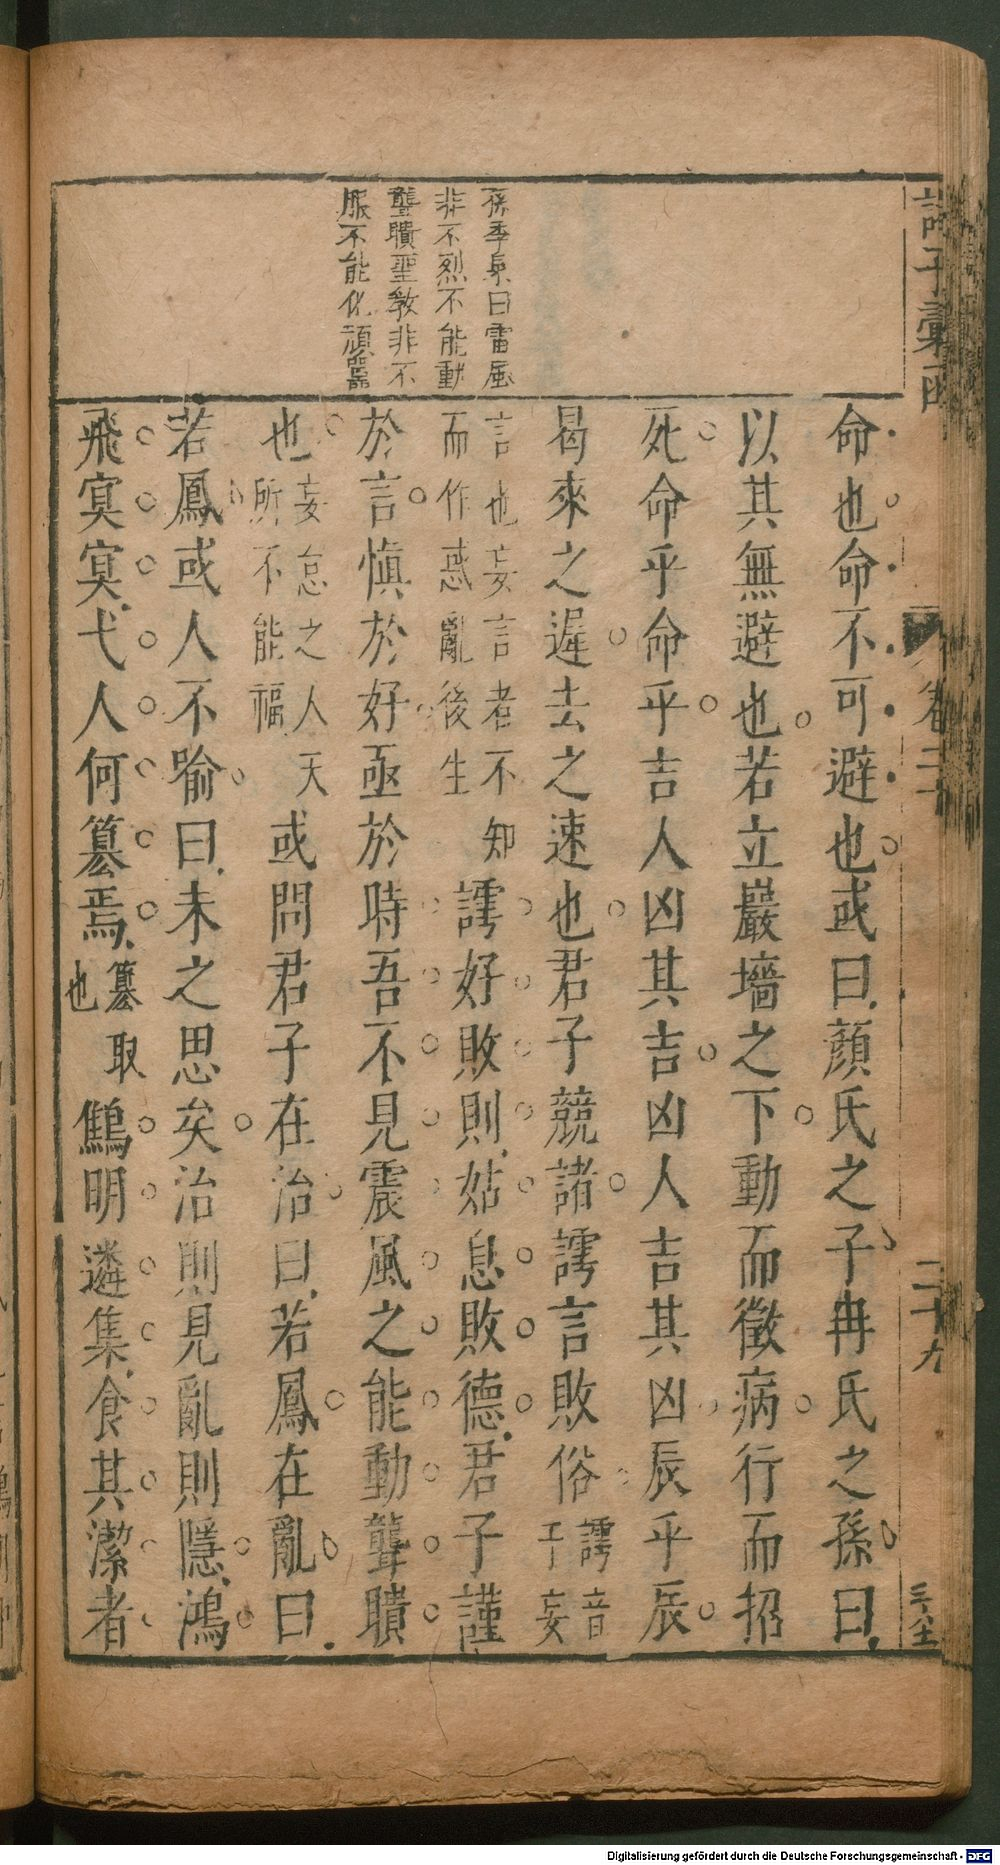 諸子彙函
卷二十
二十九
孫季泉曰雷風
非不烈不能動
聾聵聖教非不
服不能化頑嚚
命也命不可避也或曰顏氏之子冉氏之孫曰
以其無避也若立巖墻之下動而徵病行而招
死命乎命乎吉人凶其吉凶人吉其凶辰乎辰
曷來之遲去之速也君子競諸謣言敗俗謣音于妄
言也妄言者不知而作惑亂後生謣好敗則姑息敗德君子謹
於言慎於好亟於時吾不見震風之能動聾聵
也妄怠之人天所不能福或問君子在治曰若鳳在亂曰
若鳳或人不喻曰未之思矣治則見亂則隱鴻
飛冥冥弋人何篡焉篡取也鷦明遴集食其潔者
Digitalisierung gefördert durch die Deutsche Forschungsgemeinschaft - DFG